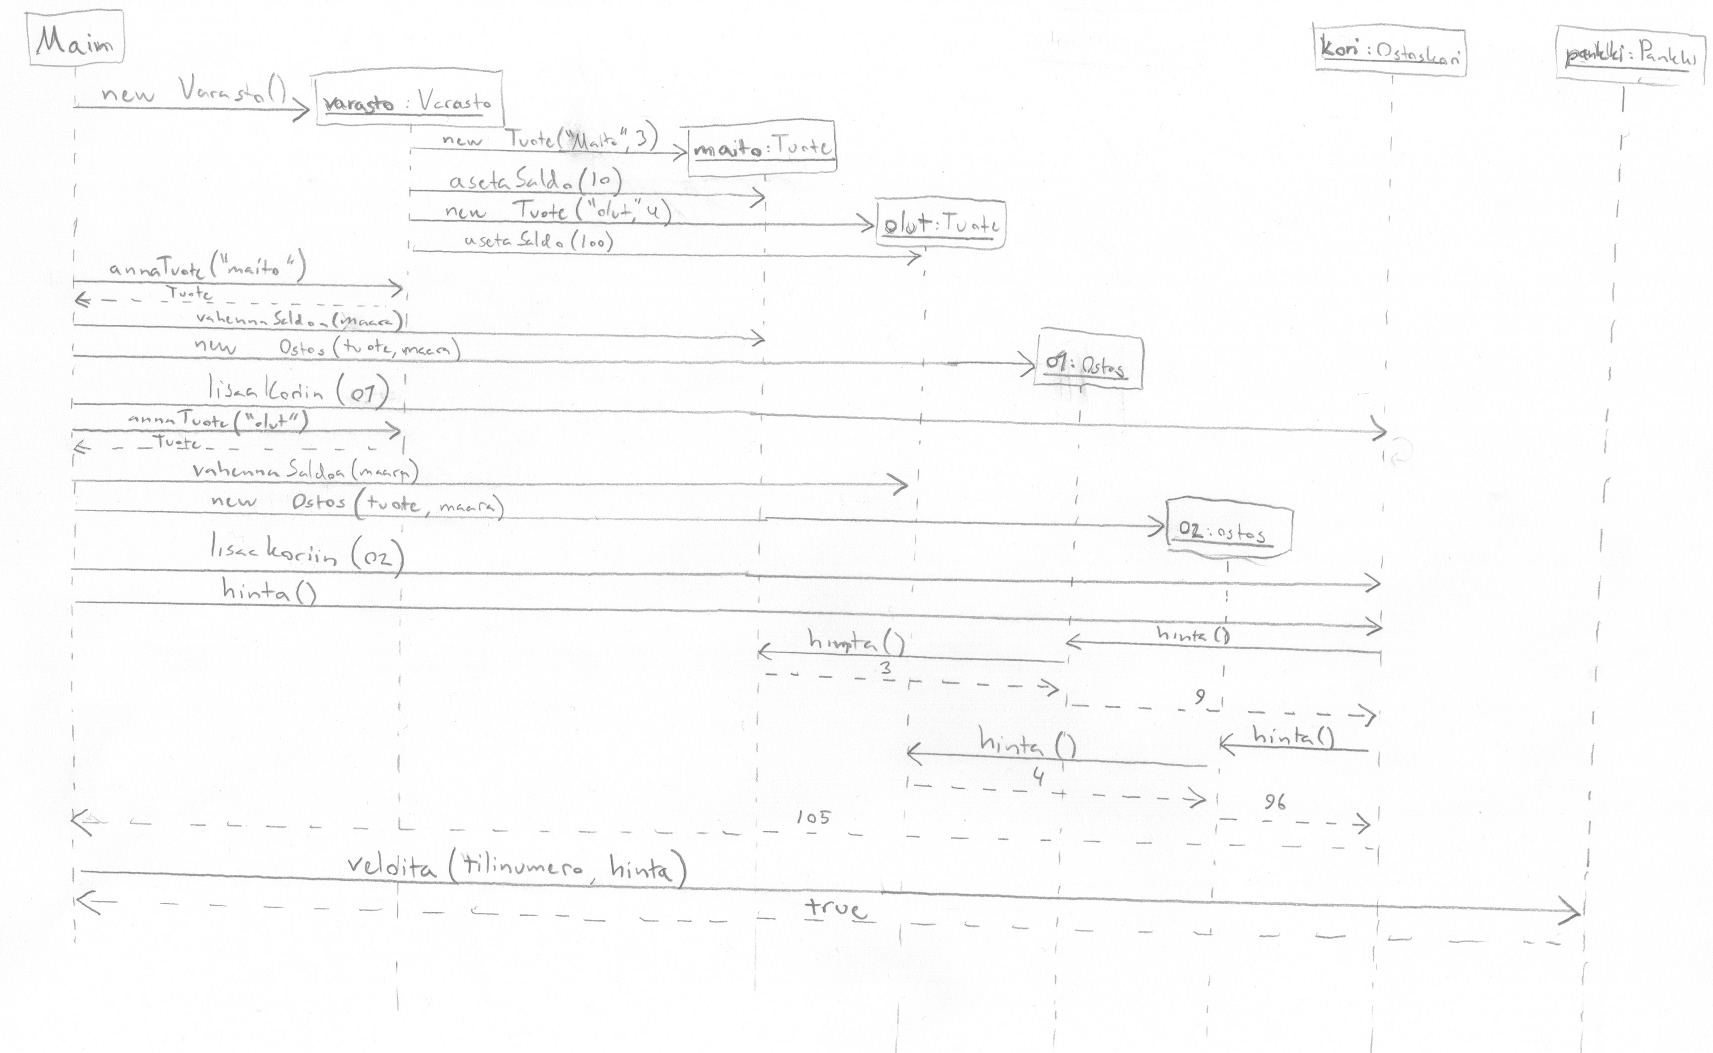 Maim
kori:Ostoskori
pankki:Pankki
new Varasto()
varasto:Varasto
new Tuote("Maito",3)
maito:Tuote
asetaSaldo(10)
new Tuote("olut",4)
olut:Tuote
asetaSaldo(100)
annaTuote("maito")
Tuote
vahennaSaldoa(maara)
new Ostos(tuote,maara)
O1:Ostos
lisaaKoriin(O1)
annaTuote("olut")
Tuote
vahennaSaldoa(maara)
new Ostos(tuote, maara)
O2:ostos
lisaaKoriin(O2)
hinta()
hinta()
hinta()
3
9
hinta()
hinta()
4
96
105
veloita(tilinumero, hinta)
true